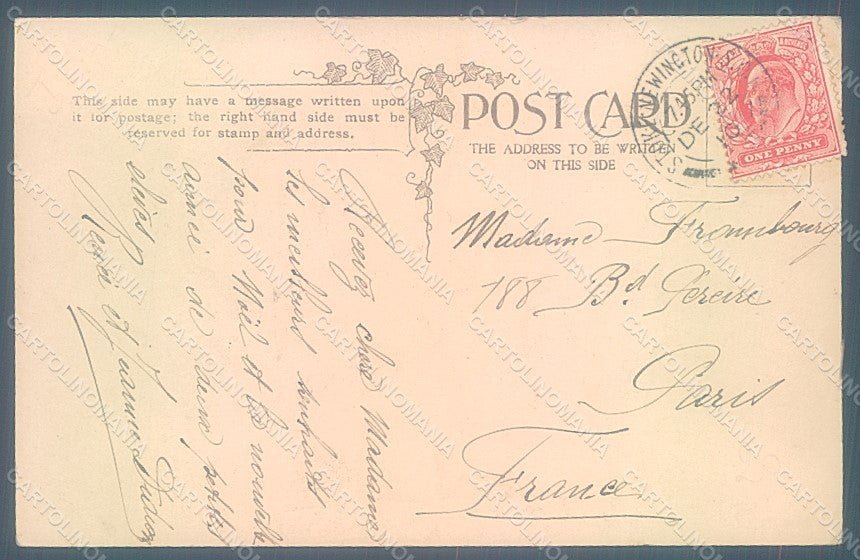 This side may have a message written upon
it for postage; the right hand side must be
reserved for stamp and address.
POST CARD
THE ADDRESS TO BE WRITTEN
ON THIS SIDE
STOKE NEWINGTON
DE
ONE PENNY
Madame Frambourg
188 Bd Pereire
Paris
France
Recevez chère Madame
les meilleurs souhaits
pour Noël et la nouvelle
année de deux petites
élèves
et Jeanne
CARTOLINOMANIA